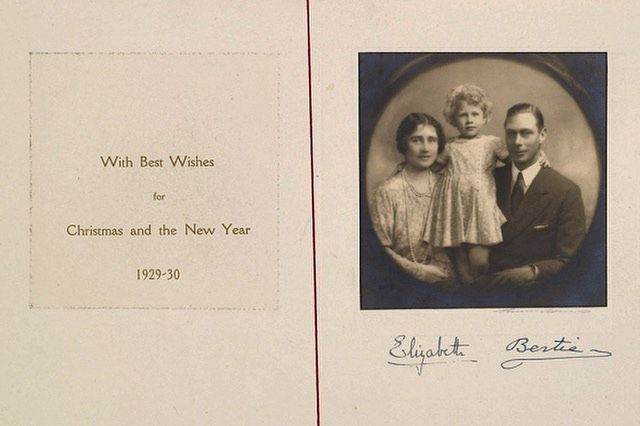 With Best Wishes
for
Christmas and the New Year
1929-30
Elizabeth Bertie